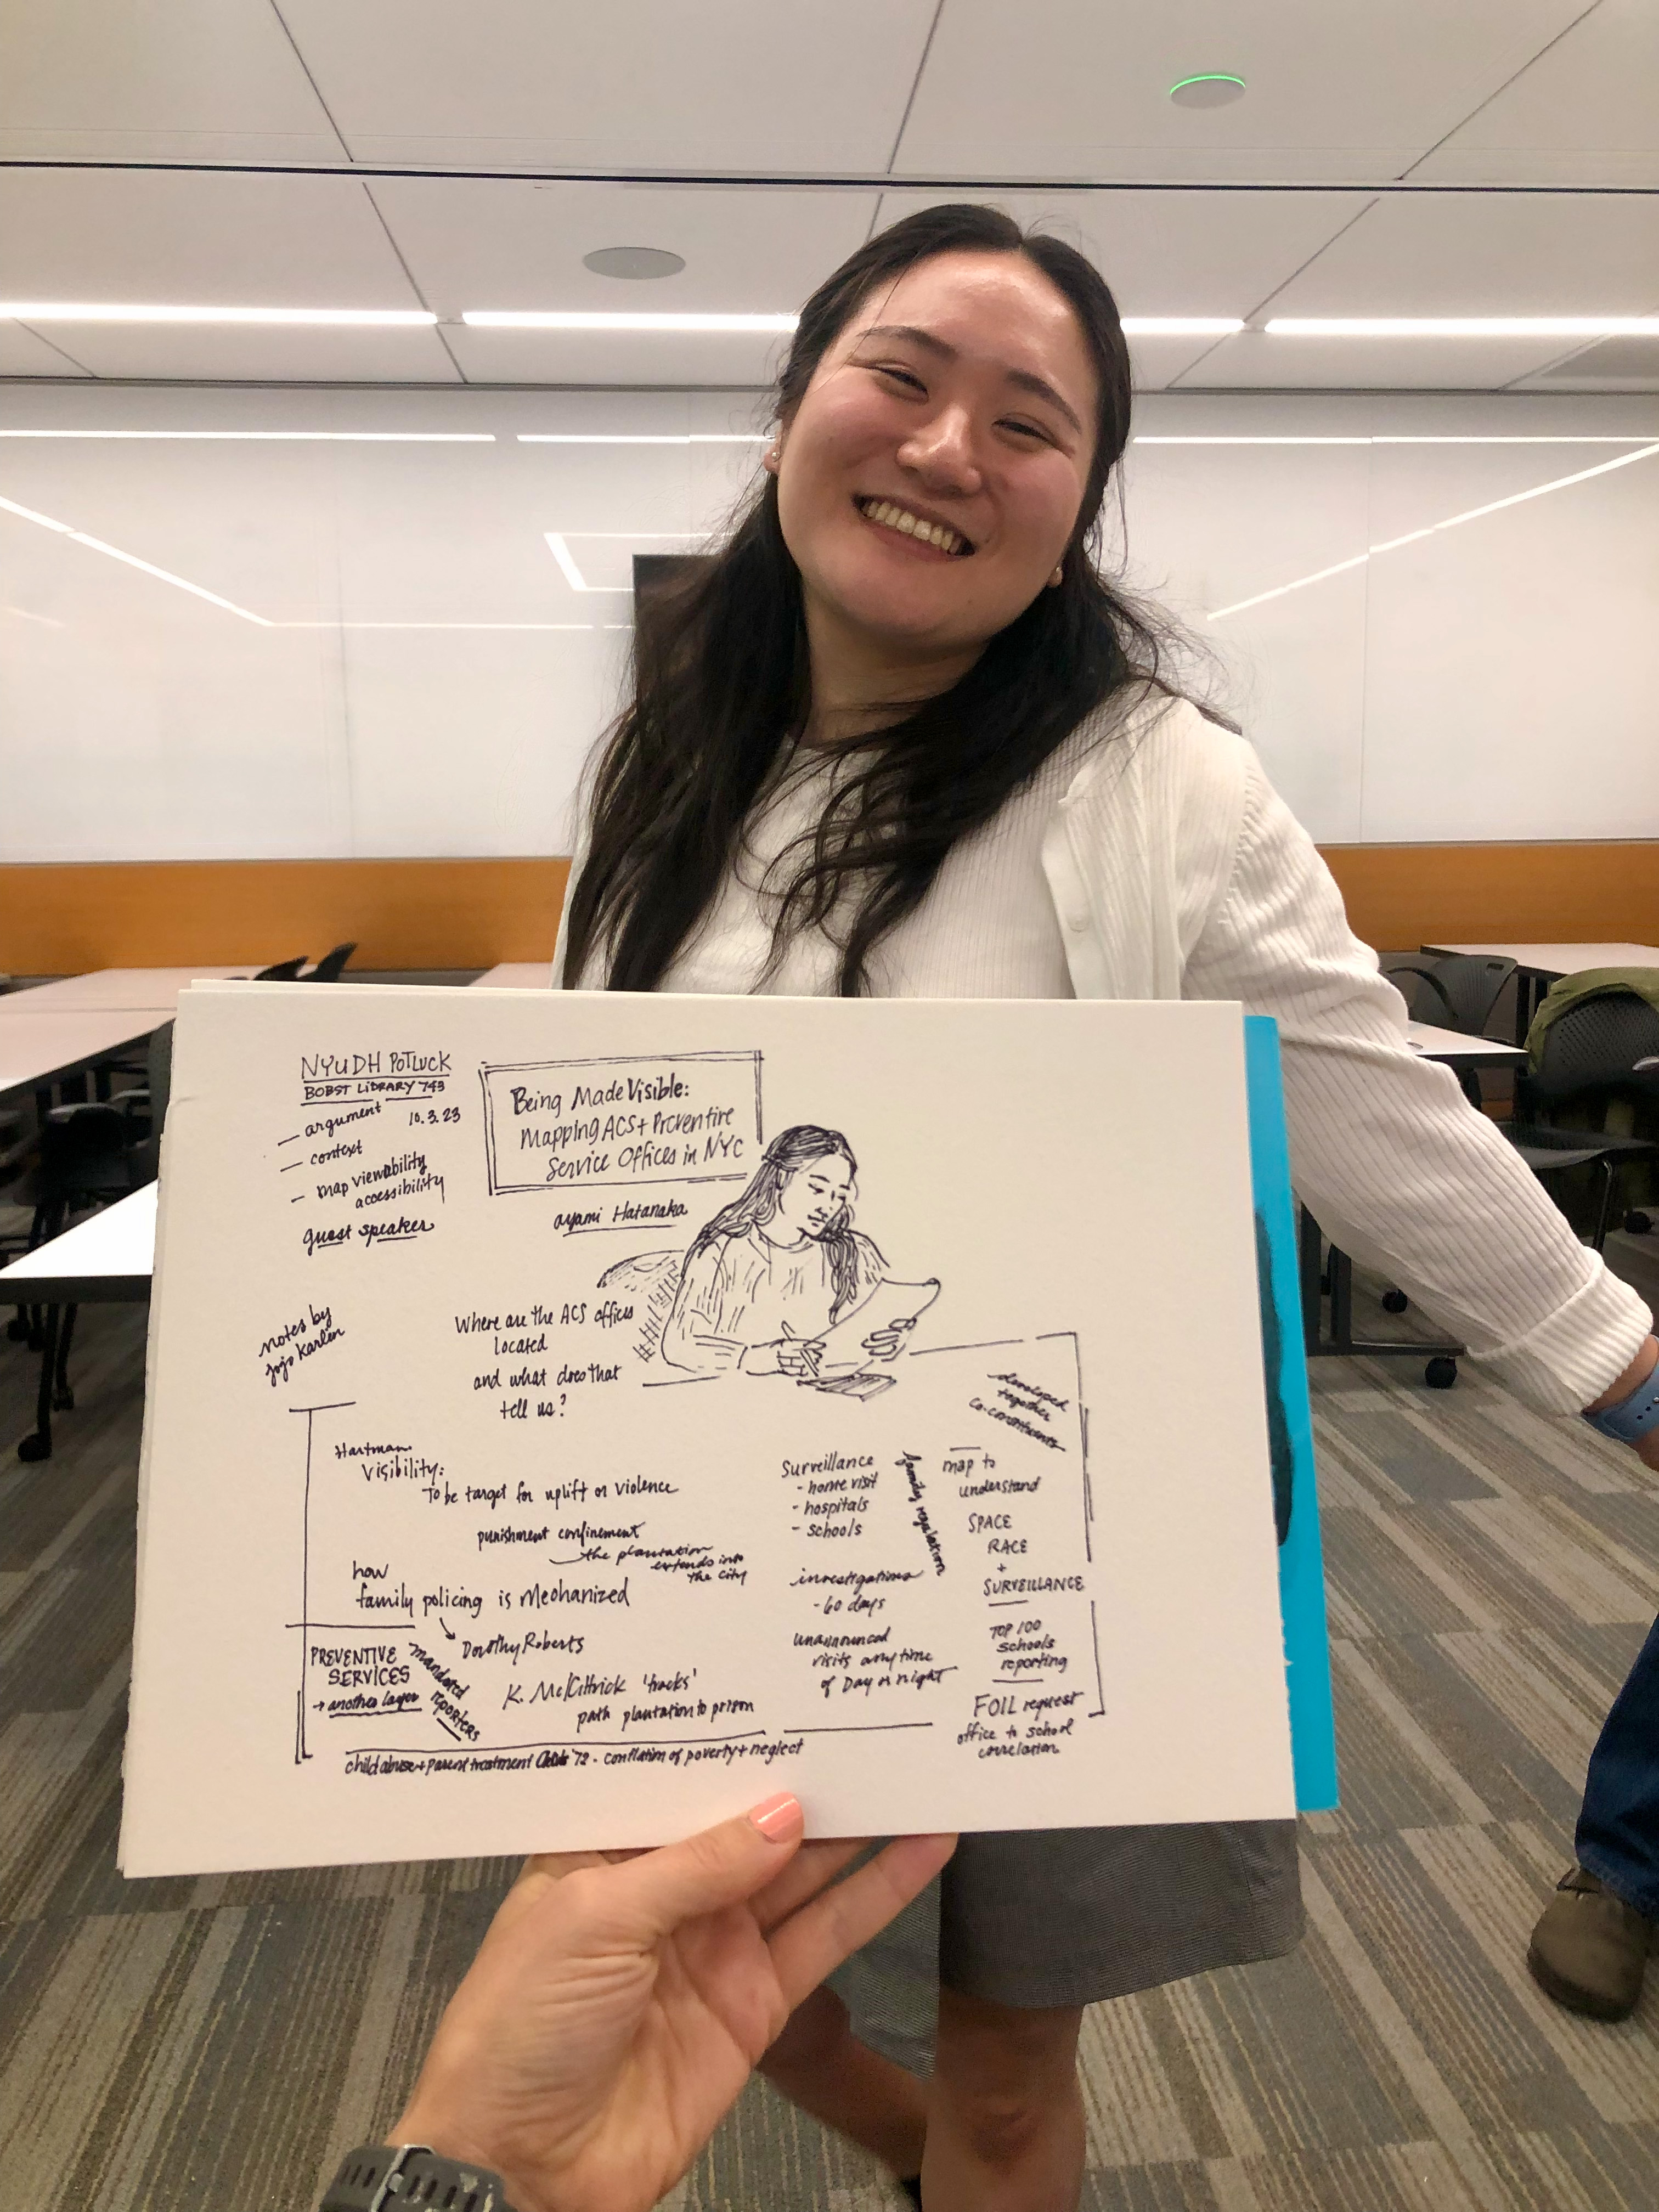 NYUDH POTLUCK
BOBST LIBRARY 743
10.3.23
— argument
— context
— map viewability
accessibility
guest speaker
Being Made Visible:
Mapping ACS + Preventive
Service Offices in NYC
ayami Hatanaka
notes by
Jojo Karlin
Where are the ACS offices
located
and what does that
tell us?
Hartman
Visibility:
To be target for uplift or violence
punishment confinement
the plantation
extends into
the city
how
family policing is Mechanized
Dorothy Roberts
K. McKittrick 'tracks'
path plantation to prison
PREVENTIVE
SERVICES
→ another layer
mandated
reporters
child abuse + Parent treatment '72 - conflation of poverty + neglect
Surveillance
- home visit
- hospitals
- schools
family regulation
investigations
- 60 days
unannounced
visits any time
of Day or night
developed
together
co-constituents
map to
understand
SPACE
RACE
+
SURVEILLANCE
TOP 100
schools
reporting
FOIL request
office to school
correlation